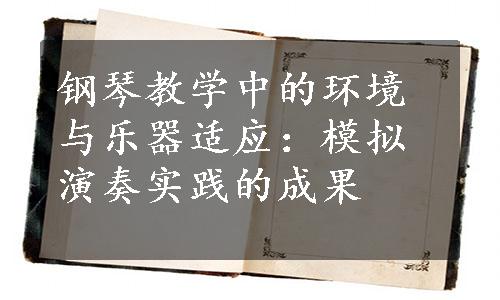 钢琴教学中的环境
与乐器适应：模拟
演奏实践的成果